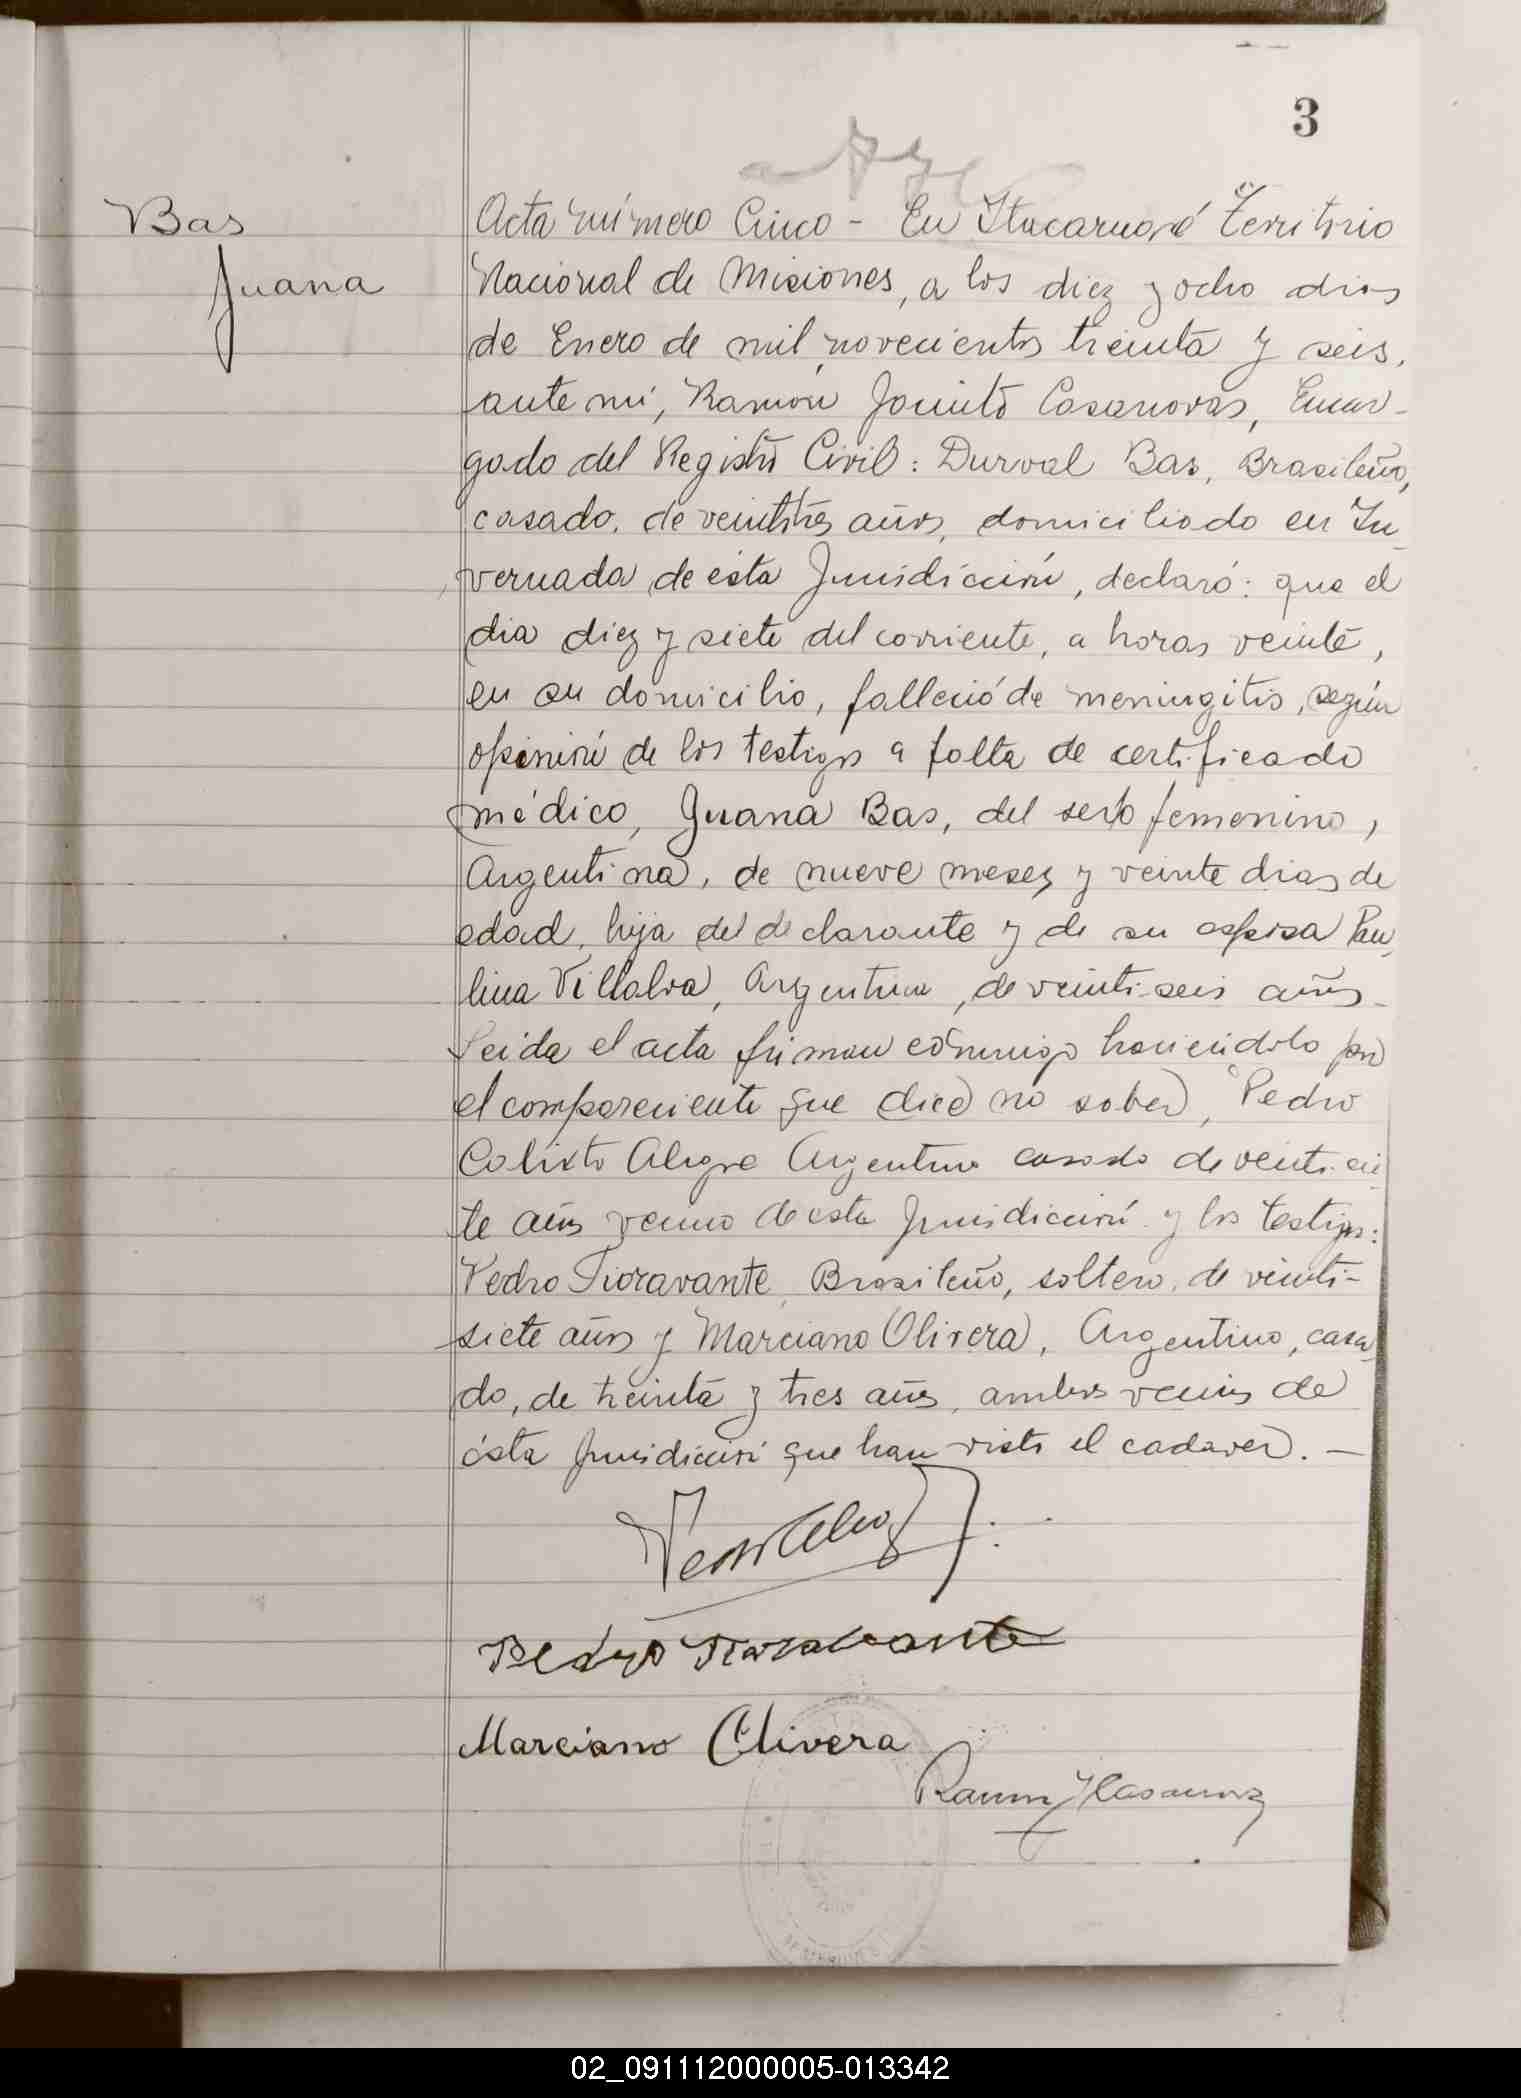 3
Bas
Juana
Acta número Cinco - En Itacaruaré Territorio
Nacional de Misiones, a los diez y ocho dias
de Enero de mil novecientos treinta y seis,
ante mi, Ramón Jacinto Casanovas, Encar-
gado del Registro Civil: Durval Bas, Brasileño,
casado, de veintitrés años, domiciliado en In-
vernada de ésta Jurisdicción, declaró: que el
dia diez y siete del corriente, a horas veinte,
en su domicilio, falleció de meningitis, según
opinión de los testigos a falta de certificado
médico, Juana Bas, del sexo femenino,
Argentina, de nueve meses y veinte dias de
edad, hija del declarante y de su esposa Pau-
lina Villalva, Argentina, de veinti-seis años -
Leida el acta firman conmigo haciéndolo por
el compareciente que dice no saber, Pedro
Calixto Alegre Argentino casado de veinti-sie-
te años vecino de esta Jurisdicción y los testigos:
Pedro Fioravante, Brasileño, soltero, de veinti-
siete años y Marciano Olivera, Argentino, casa-
do, de treinta y tres años, ambos vecinos de
ésta Jurisdicción que han visto el cadaver. -
Pedro Fioravante
Marciano Olivera
Ramón J Casanovas
02_091112000005-013342